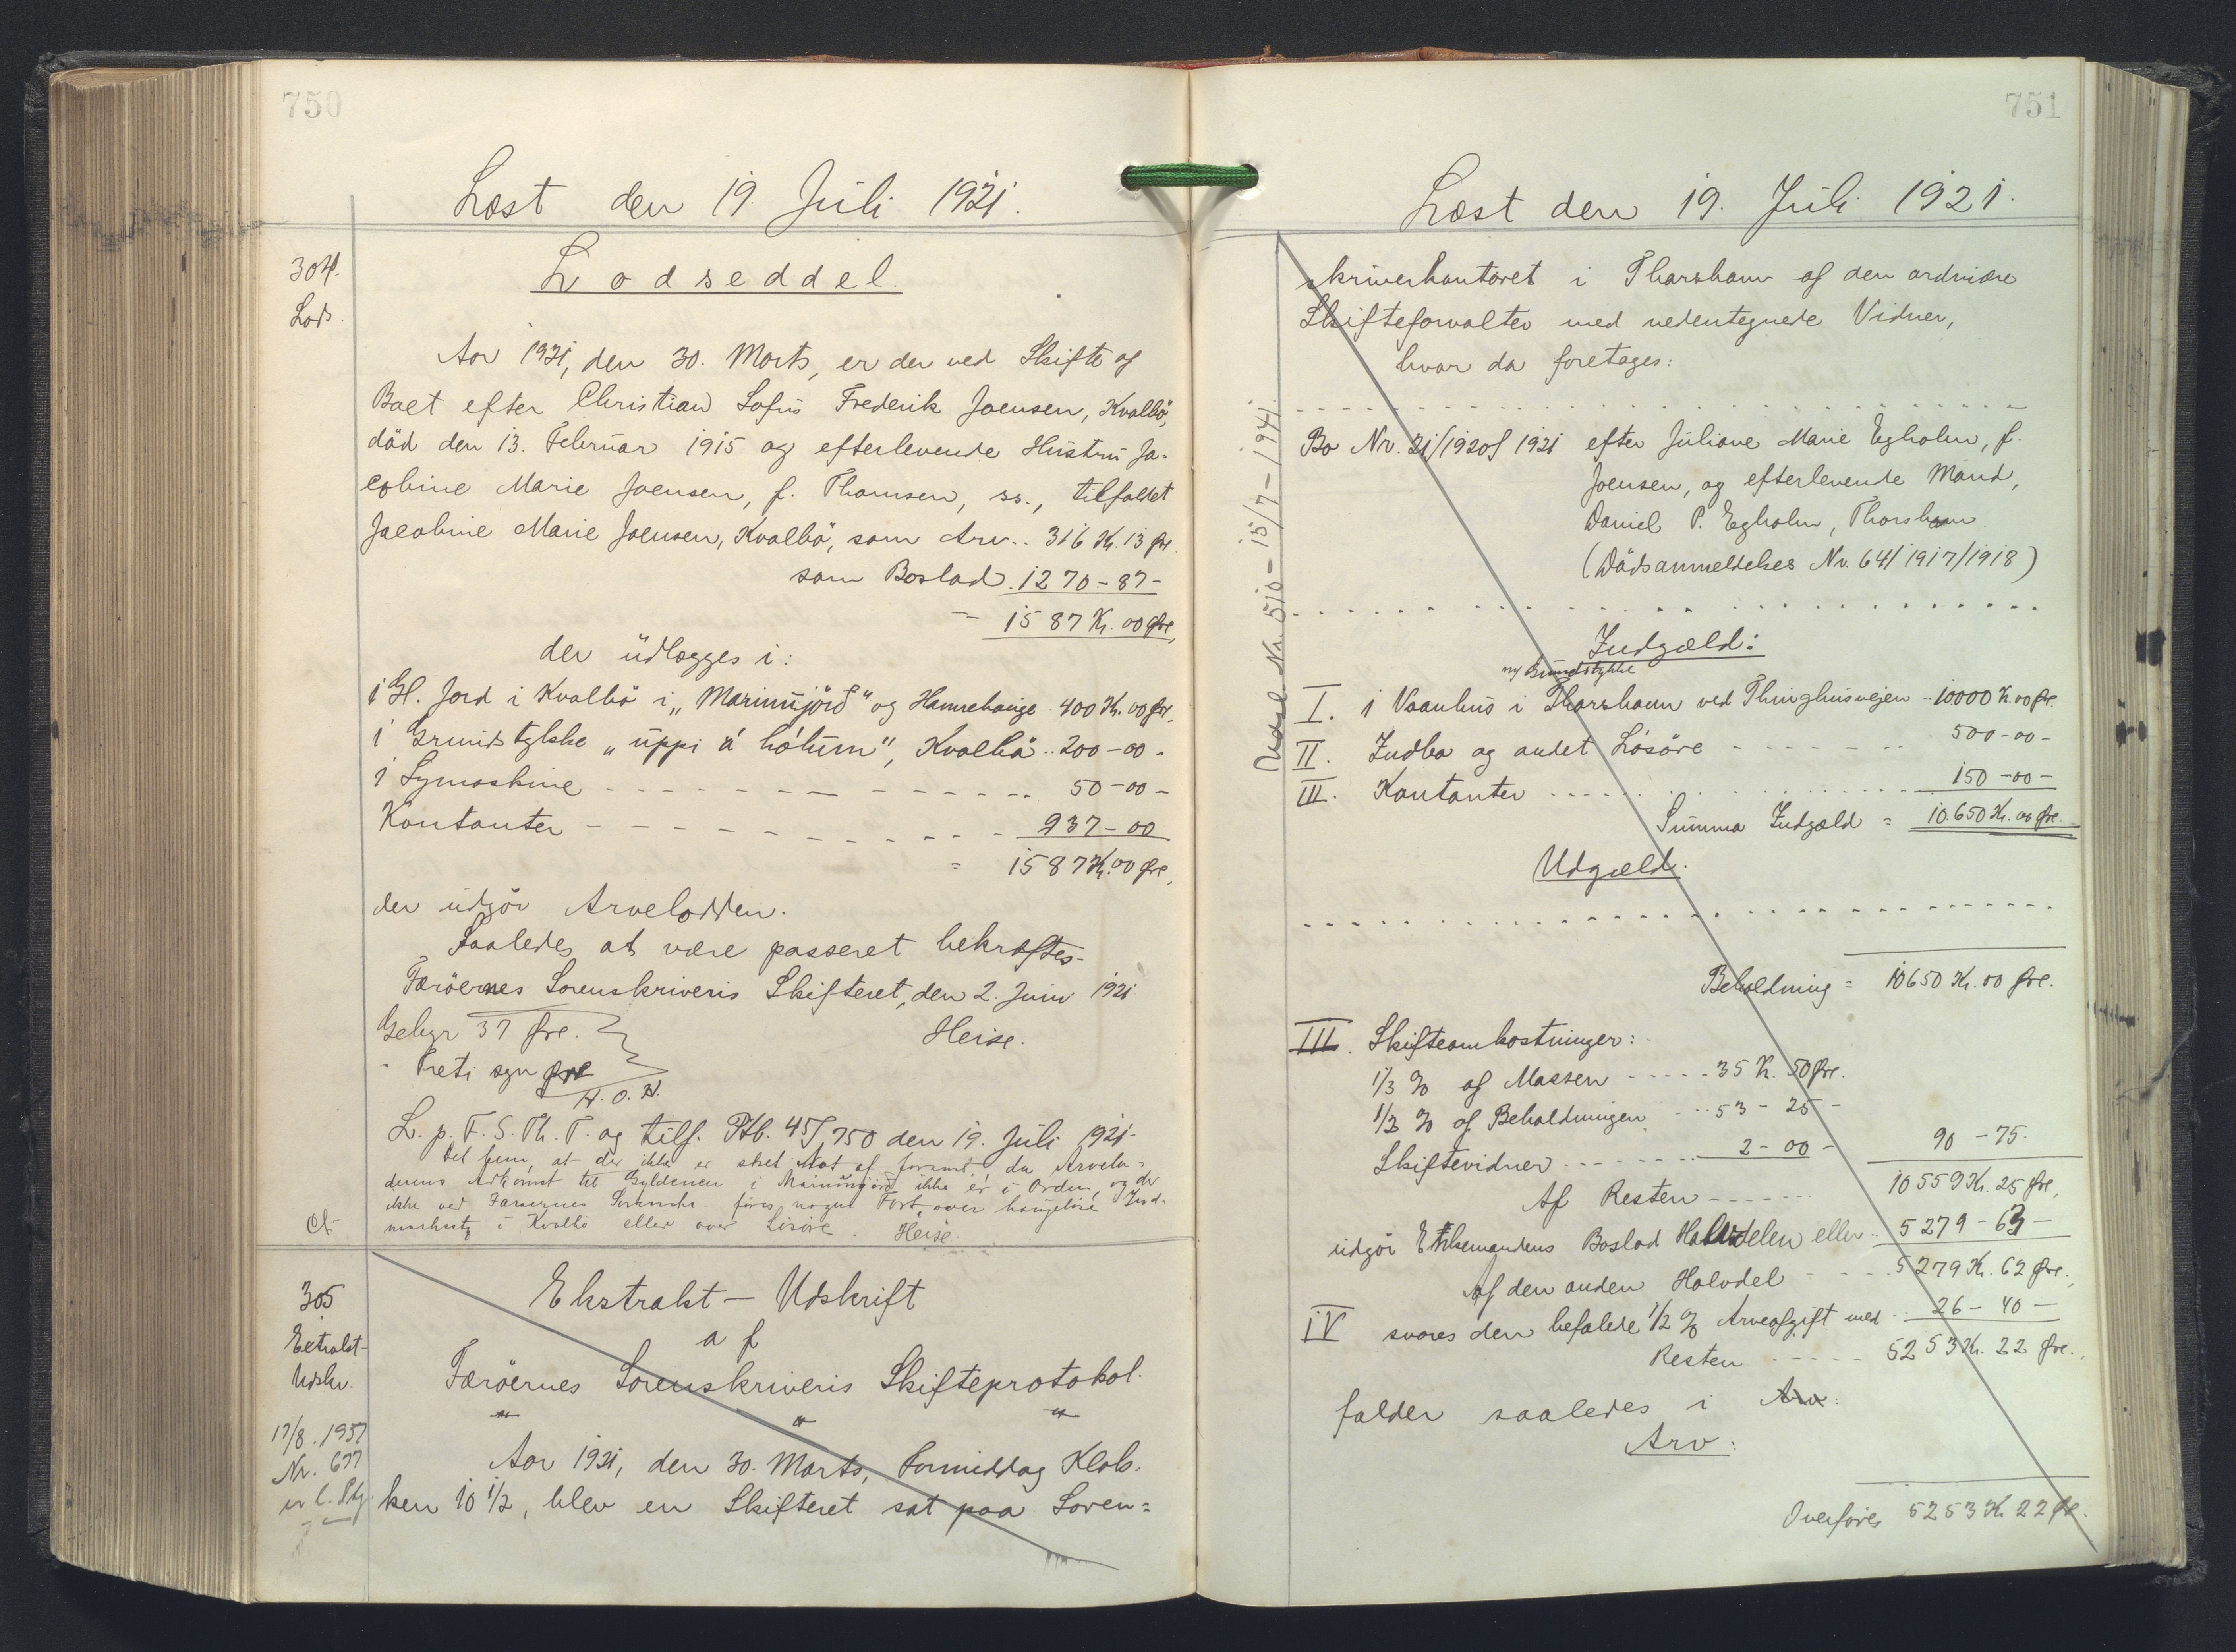 750
Læst den 19. Juli 1921.
304.
Lods.
Lodseddel.
Aar 1921, den 30. Marts, er der ved Skifte af
Boet efter Christian Sofus Frederik Joensen, Kvalbø,
död den 13. Februar 1915 og efterlevende Hustru Ja-
cobine Marie Joensen, f. Thomsen, ss., tilfaldet
Jacobine Marie Joensen, Kvalbö, som Arv.. 316 Kr. 13 Øre
som Boslod. 1270-87-
= 1587 Kr. 00 Øre,
der üdlægges i:
1 Gl. Jord i Kvalbö i „Marinujörd“ og Hamrehauge 400 Kr. 00 Øre.
1 Grundstykke „uppi á hólum“, Kvalbö.. 200-00-
1 Symaskine - - - 50-00-
Kontanter - - - 937-00
= 1587 Kr. 00 Øre,
der udgör Arvelodden.
Saaledes at være passeret bekræftes.
Færöernes Sorenskriveris Skifteret, den 2. Juni 1921
Heise.
Gebyr 37 Øre.
- Treti syv Øre
H. O. H.
L. p. F. S. Th. T. og tilf. Ptb. 45/750 den 19. Juli 1921-
Det bem. at der ikke er sket Not. af foranst. da Arvela-
derens Adkomst til Gyldenen i Marinujörd ikke er i Orden, og der
ikke ved Færøernes Sorenskr. føres nogen Fort. over haugeløse Ind-
marksstk i Kvalbö eller over Lösöre. Heise.
305
Extrakt-
Udskr.
17/8. 1957
Nr. 677
Ekstrakt - Udskrift
af
Færöernes Sorenskriveris Skifteprotokol.
" " "
Aar 1921, den 30. Marts, Formiddag Klok-
ken 10 1/2, blev en Skifteret sat paa Soren=
751
Læst den 19. Juli 1921.
Nr. 510 - 15/7 - 1941.
skriverkontoret i Thorshavn af den ordinære
Skifteforvalter med nedentegnede Vidner,
hvor da foretages:
Bo Nr. 21/1920/1921 efter Juliane Marie Egholm, f.
Joensen, og efterlevende Mand,
Daniel P. Egholm, Thorshavn.
(Dödsanmeldelses Nr. 64/1917/1918)
Indgæld:
og Grundstykke
I. 1 Vaanhus i Thorshavn ved Thinghusvejen - 10000 Kr. 00 Øre.
II. Indbo og andet Lösöre - - - 500-00-
III. Kontanter - - - 150-00-
Summa Indgæld = 10.650 Kr. 00 Øre.
Udgæld.
Beholdning = 10650 Kr. 00 Øre.
III. Skifteomkostninger:
1/3 % af Massen - - - 35 Kr. 50 Øre.
1/2 % af Beholdningen - - 53-25-
Skiftevidner - - - 2-00- 90-75-
Af Resten - - - 10559 Kr. 25 Øre,
udgör Enkemandens Boslod Halvdelen eller.. 5279-63-
Af den anden Halvdel - - - 5279 Kr. 62 Øre.,
IV svares den befalede 1/2 % Arveafgift med.. 26-40-
Resten - - - 5253 Kr. 22 Øre.,
falder saaledes i Arv:
Arv:
Overføres 5253 Kr 22 Øre.